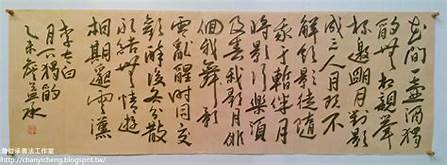 花間一壺酒獨
酌無相親舉
杯邀明月對影
成三人月既不
解飲影徒隨
我身暫伴月
將影行樂須
及春我歌月徘
徊我舞影
零亂醒時同交
歡醉後各分散
永結無情遊
相期邈雲漢
李太白
月下獨酌
乙未詹益承
詹益承書法工作室
http://chanyicheng.blogspot.tw/